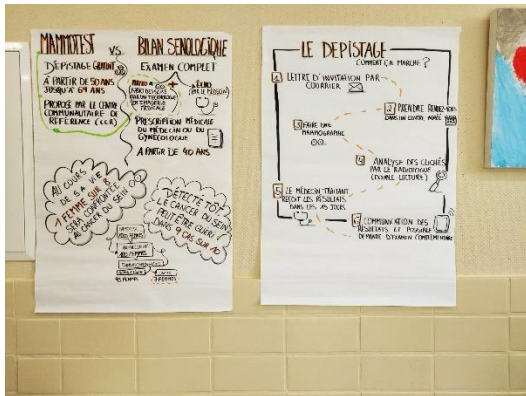 MAMMOTEST VS. BILAN SENOLOGIQUE
DÉPISTAGE GRATUIT
À PARTIR DE 50 ANS
JUSQU'À 69 ANS
PROPOSÉ PAR LE CENTRE
COMMUNAUTAIRE DE
RÉFÉRENCE (CCR)
EXAMEN COMPLET
+ ÉCHO
PRESCRIPTION MÉDICALE
DU MÉDECIN OU DU
GYNÉCOLOGUE
A PARTIR DE 40 ANS
AU COURS
DE SA VIE
1 FEMME SUR 8
SERA CONFRONTÉE
AU CANCER DU SEIN
DÉTECTÉ TÔT,
LE CANCER DU SEIN
PEUT ÊTRE GUÉRI
DANS 9 CAS SUR 10
LE DEPISTAGE
COMMENT ÇA MARCHE ?
1 LETTRE D'INVITATION PAR
COURRIER
2 PRENDRE RENDEZ-VOUS
DANS UN CENTRE AGRÉÉ
3 FAIRE UNE
MAMMOGRAPHIE
4 ANALYSE DES CLICHÉS
PAR LE RADIOLOGUE
(DOUBLE LECTURE)
5 LE MÉDECIN TRAITANT
REÇOIT LES RÉSULTATS
DANS LES 15 JOURS
6 COMMUNICATION DES
RÉSULTATS ET POSSIBLE
DEMANDE D'EXAMEN COMPLÉMENTAIRE